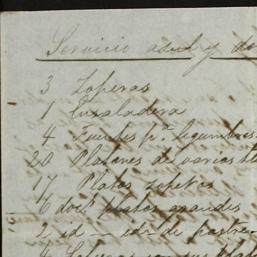 Servicio azul y do
3 Soperas
1 Ensaladera
4 Fuentes pª legumbres
20 Platones de varios
17 Platos soperos
6 docs platos grandes
2 id — id de postre